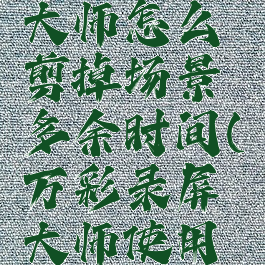 大师怎么
剪掉场景
多余时间(
万彩录屏
大师使用